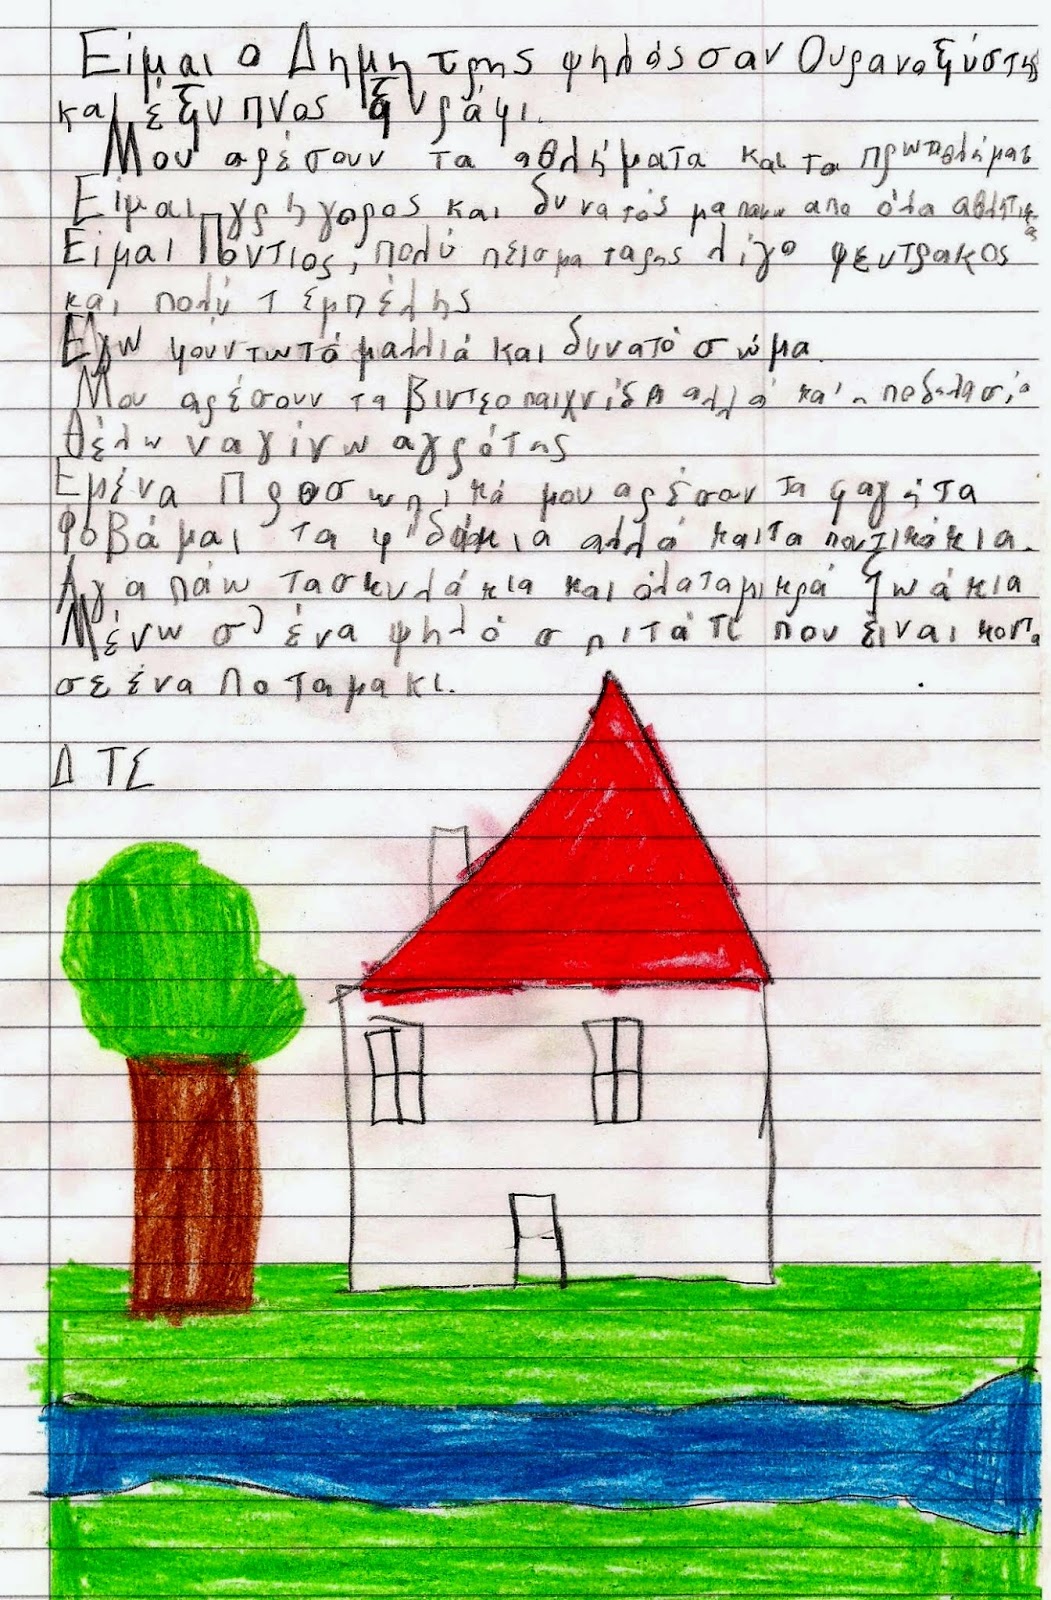 Είμαι ο Δημήτρης ψηλός σαν Ουρανοξύστης
και έξυπνος ξυράφι.
Μου αρέσουν τα αθλήματα και τα πρωταθλήματ
Είμαι γρήγορος και δυνατός μα πανω απο όλα αθλητικ
ας
Είμαι Πόντιος, πολύ πεισματαρης λίγο ψευτρακος
και πολύ τεμπέλης
Εχω φουντωτό μαλλιά και δυνατό σώμα.
Μου αρέσουν τα βιντεοπαιχνίδια αλλά κα' η ποδηλασία
θέλω να γίνω αγρότης
Εμένα Προσωπικά μου αρέσαν τα φαγήτα
Φοβάμαι τα φιδάκια αλλά και τα ποντικάκια.
Αγαπάω τα σκυλάκια και όλα τα μικρά ζωάκια
Μένω σ' ένα ψηλό σπιτάτι που είναι κοντα
σε ένα ποταμακι.
Δ ΤΣ